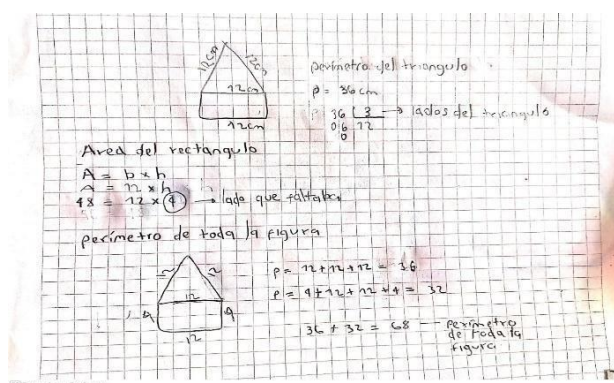 12cm 12cm
12cm
12cm
perimetro del triangulo
P = 36cm
36 | 3 → lados del triangulo
06 12
0
Area del rectangulo
A = b x h
A = 12 x h
48 = 12 x 4 → lado que faltaba
perimetro de toda la figura
12 12
12
4 4
12
P = 12+12+12 = 36
P = 4+12+12+4 = 32
36 + 32 = 68 perimetro
de toda la
figura